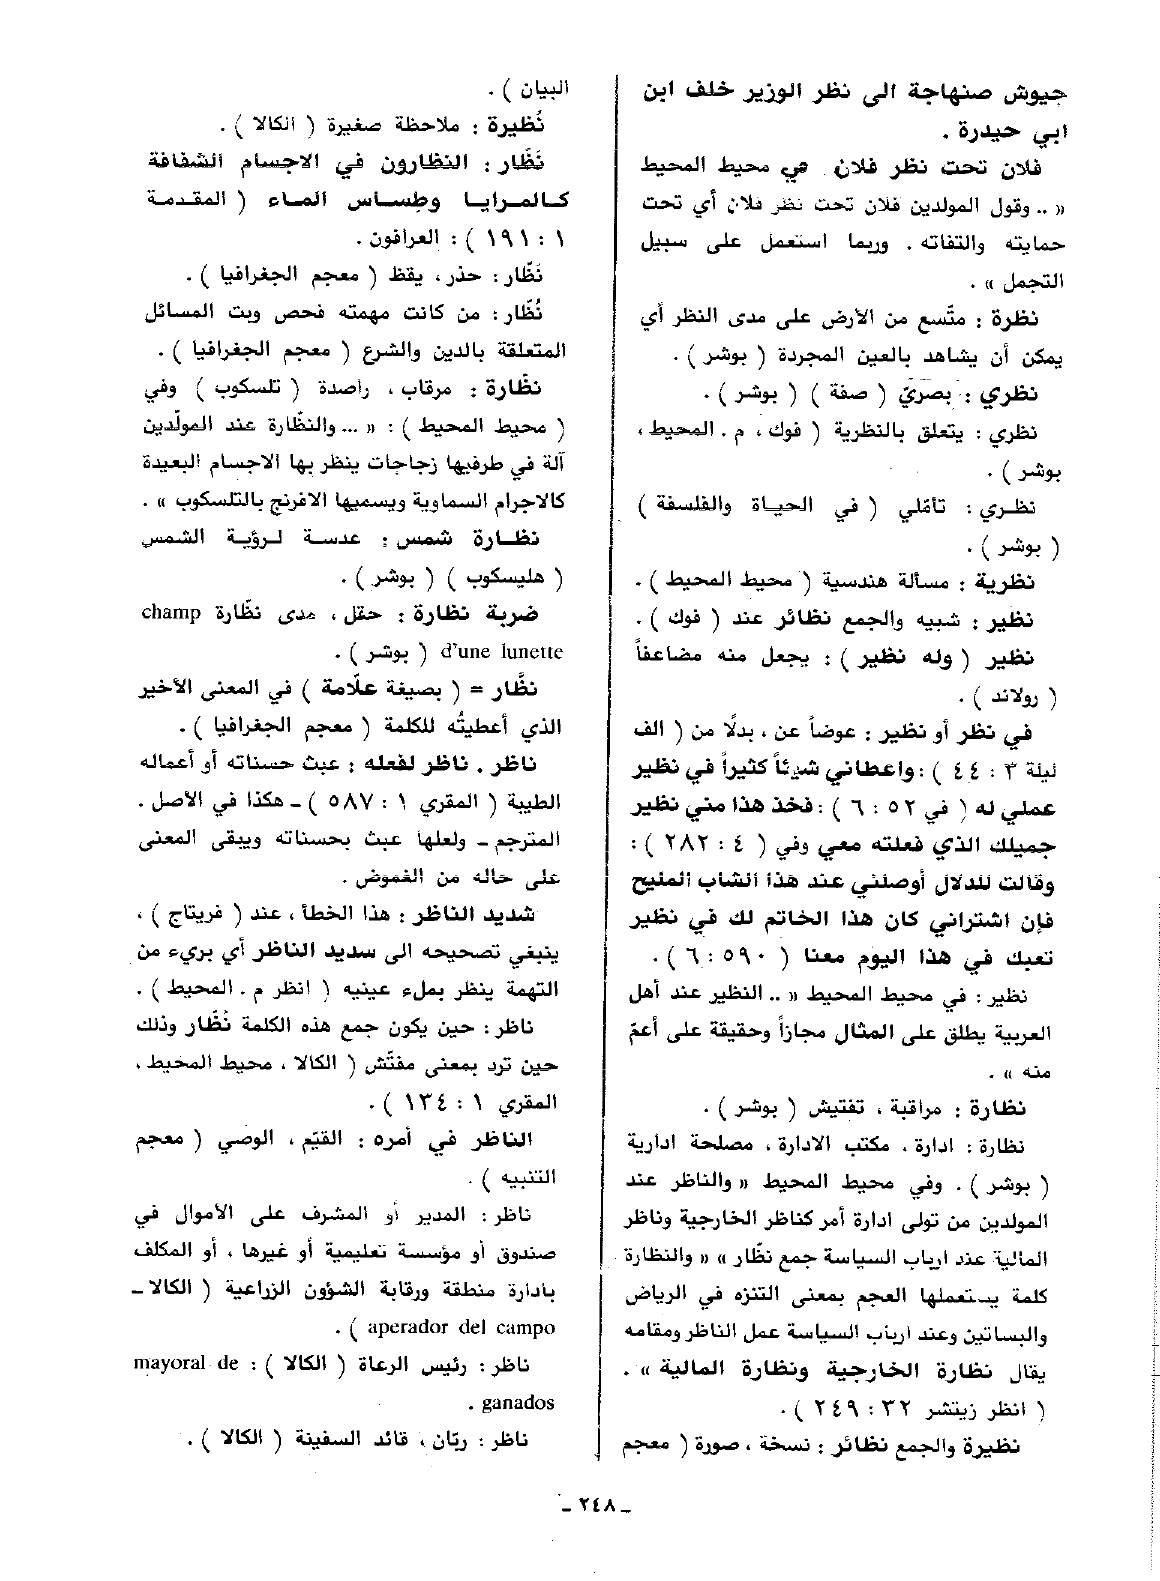 جيوش صنهاجة الى نظر الوزير خلف ابن
ابي حيدرة .
فلان تحت نظر فلان في محيط المحيط
« .. وقول المولدين فلان تحت نظر فلان أي تحت
حمايته والتفاته . وربما استعمل على سبيل
التجمل » .
نظرة : متّسع من الأرض على مدى النظر أي
يمكن أن يشاهد بالعين المجردة ( بوشر ) .
نظري : بصريّ ( صفة ) ( بوشر ) .
نظري : يتعلق بالنظرية ( فوك ، م . المحيط ،
بوشر ) .
نظري : تأملي ( في الحياة والفلسفة )
( بوشر ) .
نظرية : مسألة هندسية ( محيط المحيط ) .
نظير : شبيه والجمع نظائر عند ( فوك ) .
نظير ( وله نظير ) : يجعل منه مضاعفاً
( رولاند ) .
في نظر أو نظير : عوضاً عن ، بدلًا من ( الف
ليلة ٣ : ٤٤ ) : واعطاني شيئاً كثيراً في نظير
عملي له ( في ٥٢ : ٦ ) : فخذ هذا مني نظير
جميلك الذي فعلته معي وفي ( ٤ : ٢٨٢ ) :
وقالت للدلال أوصلني عند هذا الشاب المليح
فإن اشتراني كان هذا الخاتم لك في نظير
تعبك في هذا اليوم معنا ( ٥٩٠ : ٦ ) .
نظير : في محيط المحيط « .. النظير عند أهل
العربية يطلق على المثال مجازاً وحقيقة على أعمّ
منه » .
نظارة : مراقبة ، تفتيش ( بوشر ) .
نظارة : ادارة ، مكتب الادارة ، مصلحة ادارية
( بوشر ) . وفي محيط المحيط « والناظر عند
المولدين من تولى ادارة أمر كناظر الخارجية وناظر
المالية عند ارباب السياسة جمع نظّار » « والنظارة
كلمة يستعملها العجم بمعنى التنزه في الرياض
والبساتين وعند ارباب السياسة عمل الناظر ومقامه
يقال نظارة الخارجية ونظارة المالية » .
( انظر زيتشر ٢٢ : ٢٤٩ ) .
نظيرة والجمع نظائر : نسخة ، صورة ( معجم
البيان ) .
نُظَيرة : ملاحظة صغيرة ( الكالا ) .
نَظّار : النظارون في الاجسام الشفافة
كالمرايا وطساس الماء ( المقدمة
١ : ١٩١ ) : العرافون .
نَظّار : حذر ، يقظ ( معجم الجغرافيا ) .
نُظّار : من كانت مهمته فحص وبت المسائل
المتعلقة بالدين والشرع ( معجم الجغرافيا ) .
نظّارة : مرقاب ، راصدة ( تلسكوب ) وفي
( محيط المحيط ) : « ... والنظّارة عند المولّدين
آلة في طرفيها زجاجات ينظر بها الاجسام البعيدة
كالاجرام السماوية ويسميها الافرنج بالتلسكوب » .
نظارة شمس : عدسة لرؤية الشمس
( هليسكوب ) ( بوشر ) .
ضربة نظارة : حقل ، مدى نظّارة champ
d'une lunette ( بوشر ) .
نظّار = ( بصيغة علّامة ) في المعنى الأخير
الذي أعطيتُه للكلمة ( معجم الجغرافيا ) .
ناظر . ناظر لفعله : عبث حسناته أو أعماله
الطيبة ( المقري ١ : ٥٨٧ ) – هكذا في الأصل .
المترجم – ولعلها عبث بحسناته ويبقى المعنى
على حاله من الغموض .
شديد الناظر : هذا الخطأ ، عند ( فريتاج ) ،
ينبغي تصحيحه الى سديد الناظر أي بريء من
التهمة ينظر بملء عينيه ( انظر م . المحيط ) .
ناظر : حين يكون جمع هذه الكلمة نُظّار وذلك
حين ترد بمعنى مفتّش ( الكالا ، محيط المحيط ،
المقري ١ : ١٣٤ ) .
الناظر في أمره : القيّم ، الوصي ( معجم
التنبيه ) .
ناظر : المدير أو المشرف على الأموال في
صندوق أو مؤسسة تعليمية أو غيرها ، أو المكلف
بادارة منطقة ورقابة الشؤون الزراعية ( الكالا –
aperador del campo ) .
ناظر : رئيس الرعاة ( الكالا ) : mayoral de
ganados .
ناظر : ربّان ، قائد السفينة ( الكالا ) .
– ٢٤٨ –